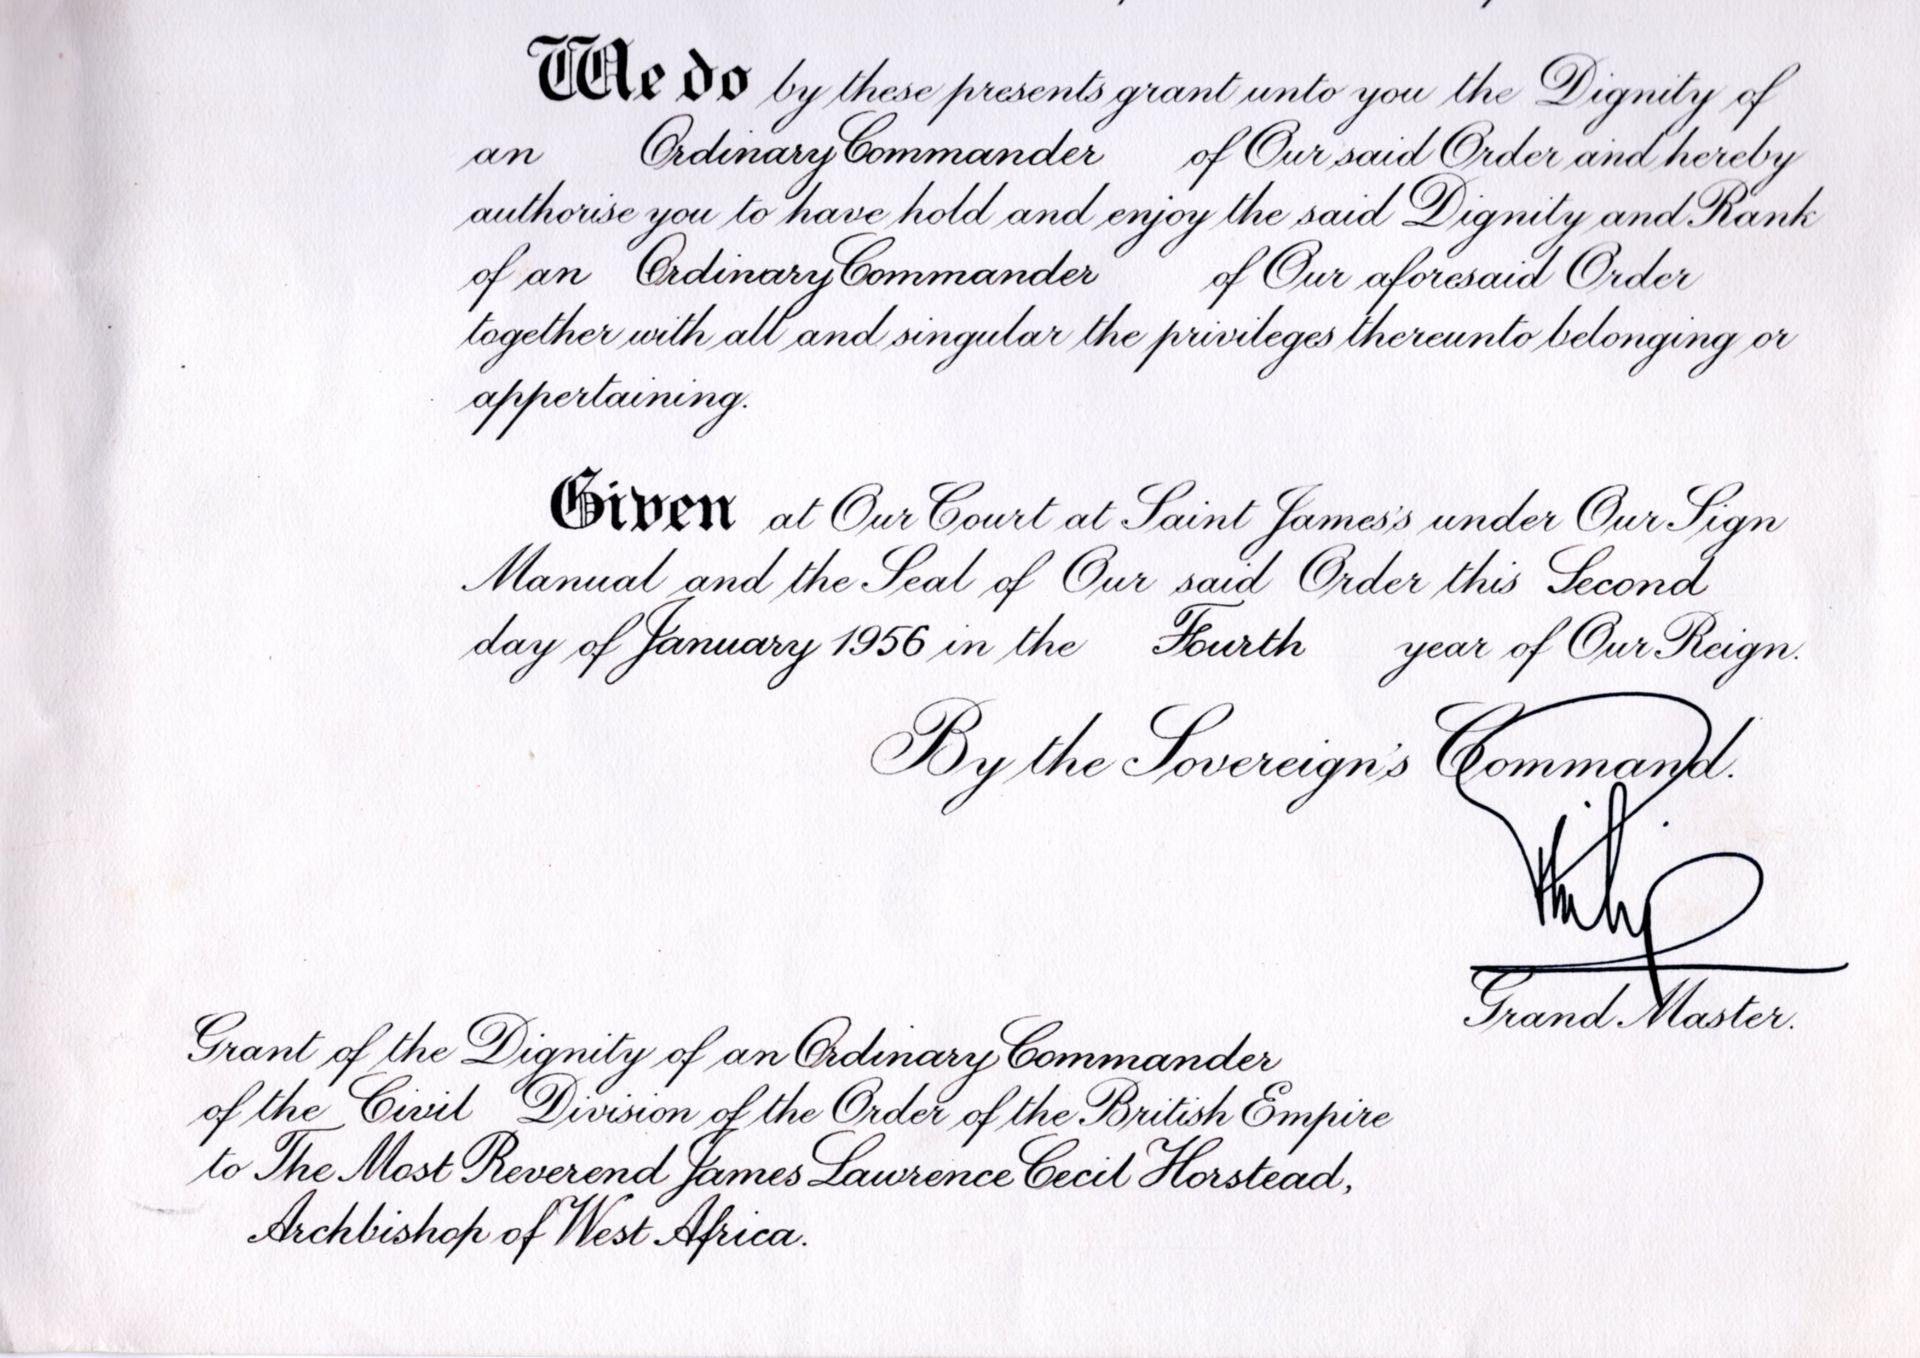 We do by these presents grant unto you the Dignity of
an Ordinary Commander of Our said Order and hereby
authorise you to have hold and enjoy the said Dignity and Rank
of an Ordinary Commander of Our aforesaid Order
together with all and singular the privileges thereunto belonging or
appertaining.
Given at Our Court at Saint James's under Our Sign
Manual and the Seal of Our said Order this Second
day of January 1956 in the Fourth year of Our Reign.
By the Sovereign's Command.
Philip
Grand Master.
Grant of the Dignity of an Ordinary Commander
of the Civil Division of the Order of the British Empire
to The Most Reverend James Lawrence Cecil Horstead,
Archbishop of West Africa.